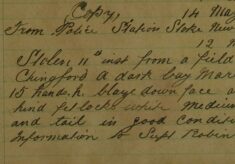 Copy, 14 May
From Police Station Stoke New
12 M
Stolen 11th inst from a field
Chingford a dark bay Mare
15 hands h blaze down face a
hind fetlocks white medium
and tail in good condit
Information to Supt Robin